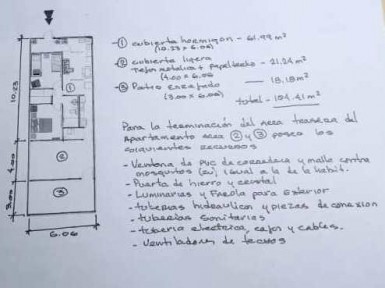 ① cubierta hormigon - 61.99 m²
(10.23 x 6.06)
② cubierta ligera
Teja metalica + papel techo - 21.24 m²
(4.00 x 6.06
③ Patio enrejado — 18.18 m²
(3.00 x 6.06)
total - 104.41 m²
Para la terminación del area trasera del
Apartamento area ② y ③ poseo los
siguientes recursos
- Ventana de PVC de corredera y malla contra
mosquitos igual a la de la habit.
- Puerta de hierro y cristal
- Luminarias y Farola para Exterior
- tuberias hidraulica y piezas de conexion
- tuberias sanitarias
- tuberia electrica, cajas y cables.
- Ventiladores de techos
10.23
4.00
3.00
6.06
①
②
③